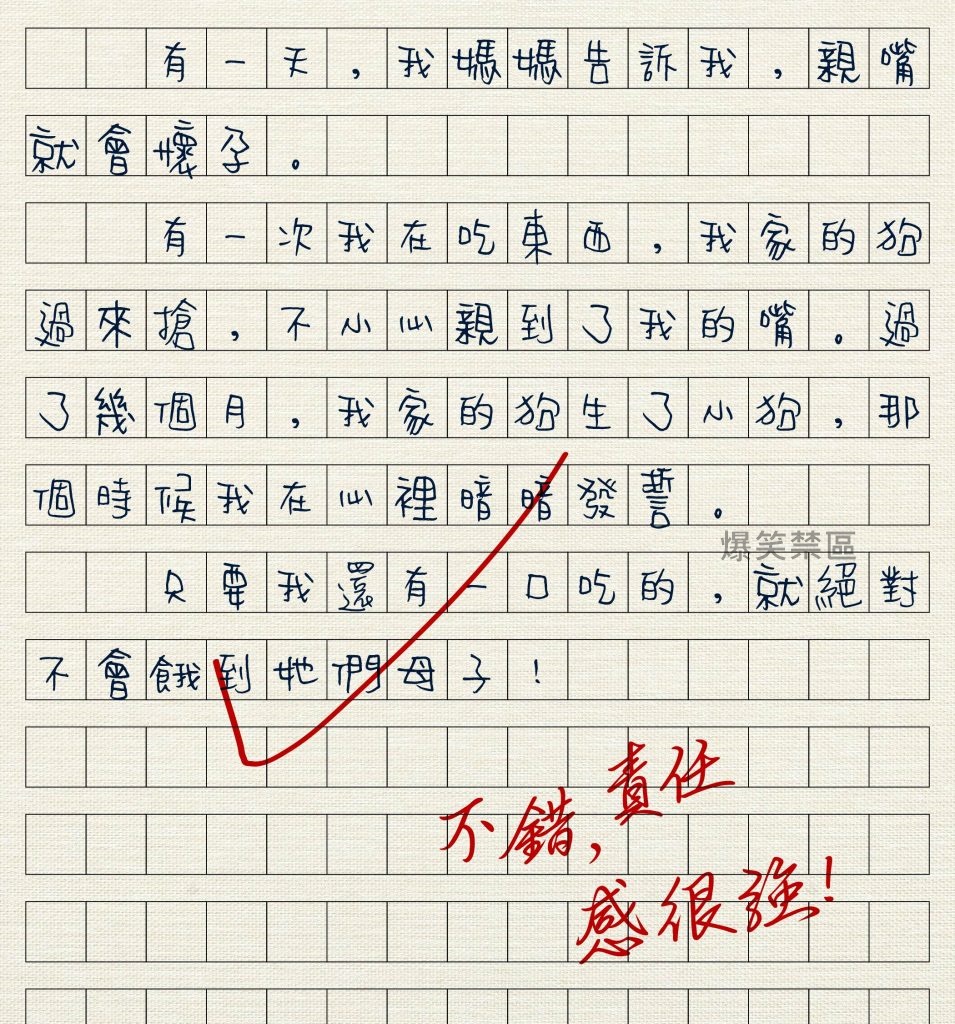 有一天，我媽媽告訴我，親嘴
就會懷孕。
有一次我在吃東西，我家的狗
過來搶，不小心親到了我的嘴。過
了幾個月，我家的狗生了小狗，那
個時候我在心裡暗暗發誓。
爆笑禁區
只要我還有一口吃的，就絕對
不會餓到她們母子！
不錯，責任
感很強！